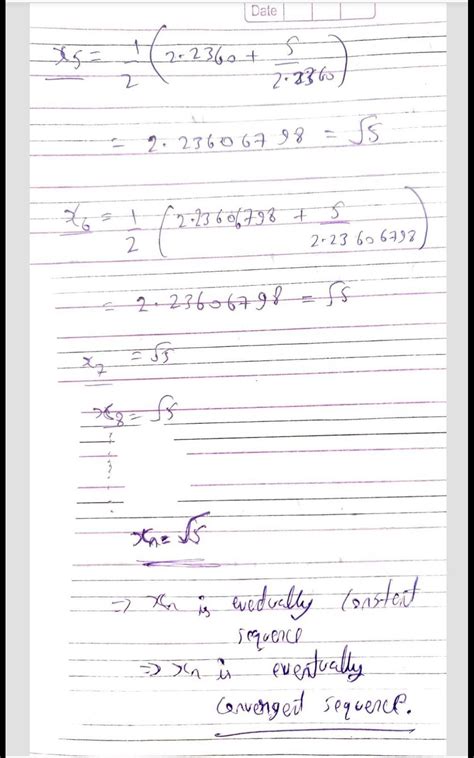 Date
x5 = 1/2 (2.2360 + 5/2.2360)
= 2.23606798 = √5
x6 = 1/2 (2.23606798 + 5/2.23606798)
= 2.23606798 = √5
x7 = √5
x8 = √5
xn = √5
⇒ xn is evedually constent
sequence
⇒ xn is eventually
converged sequence.